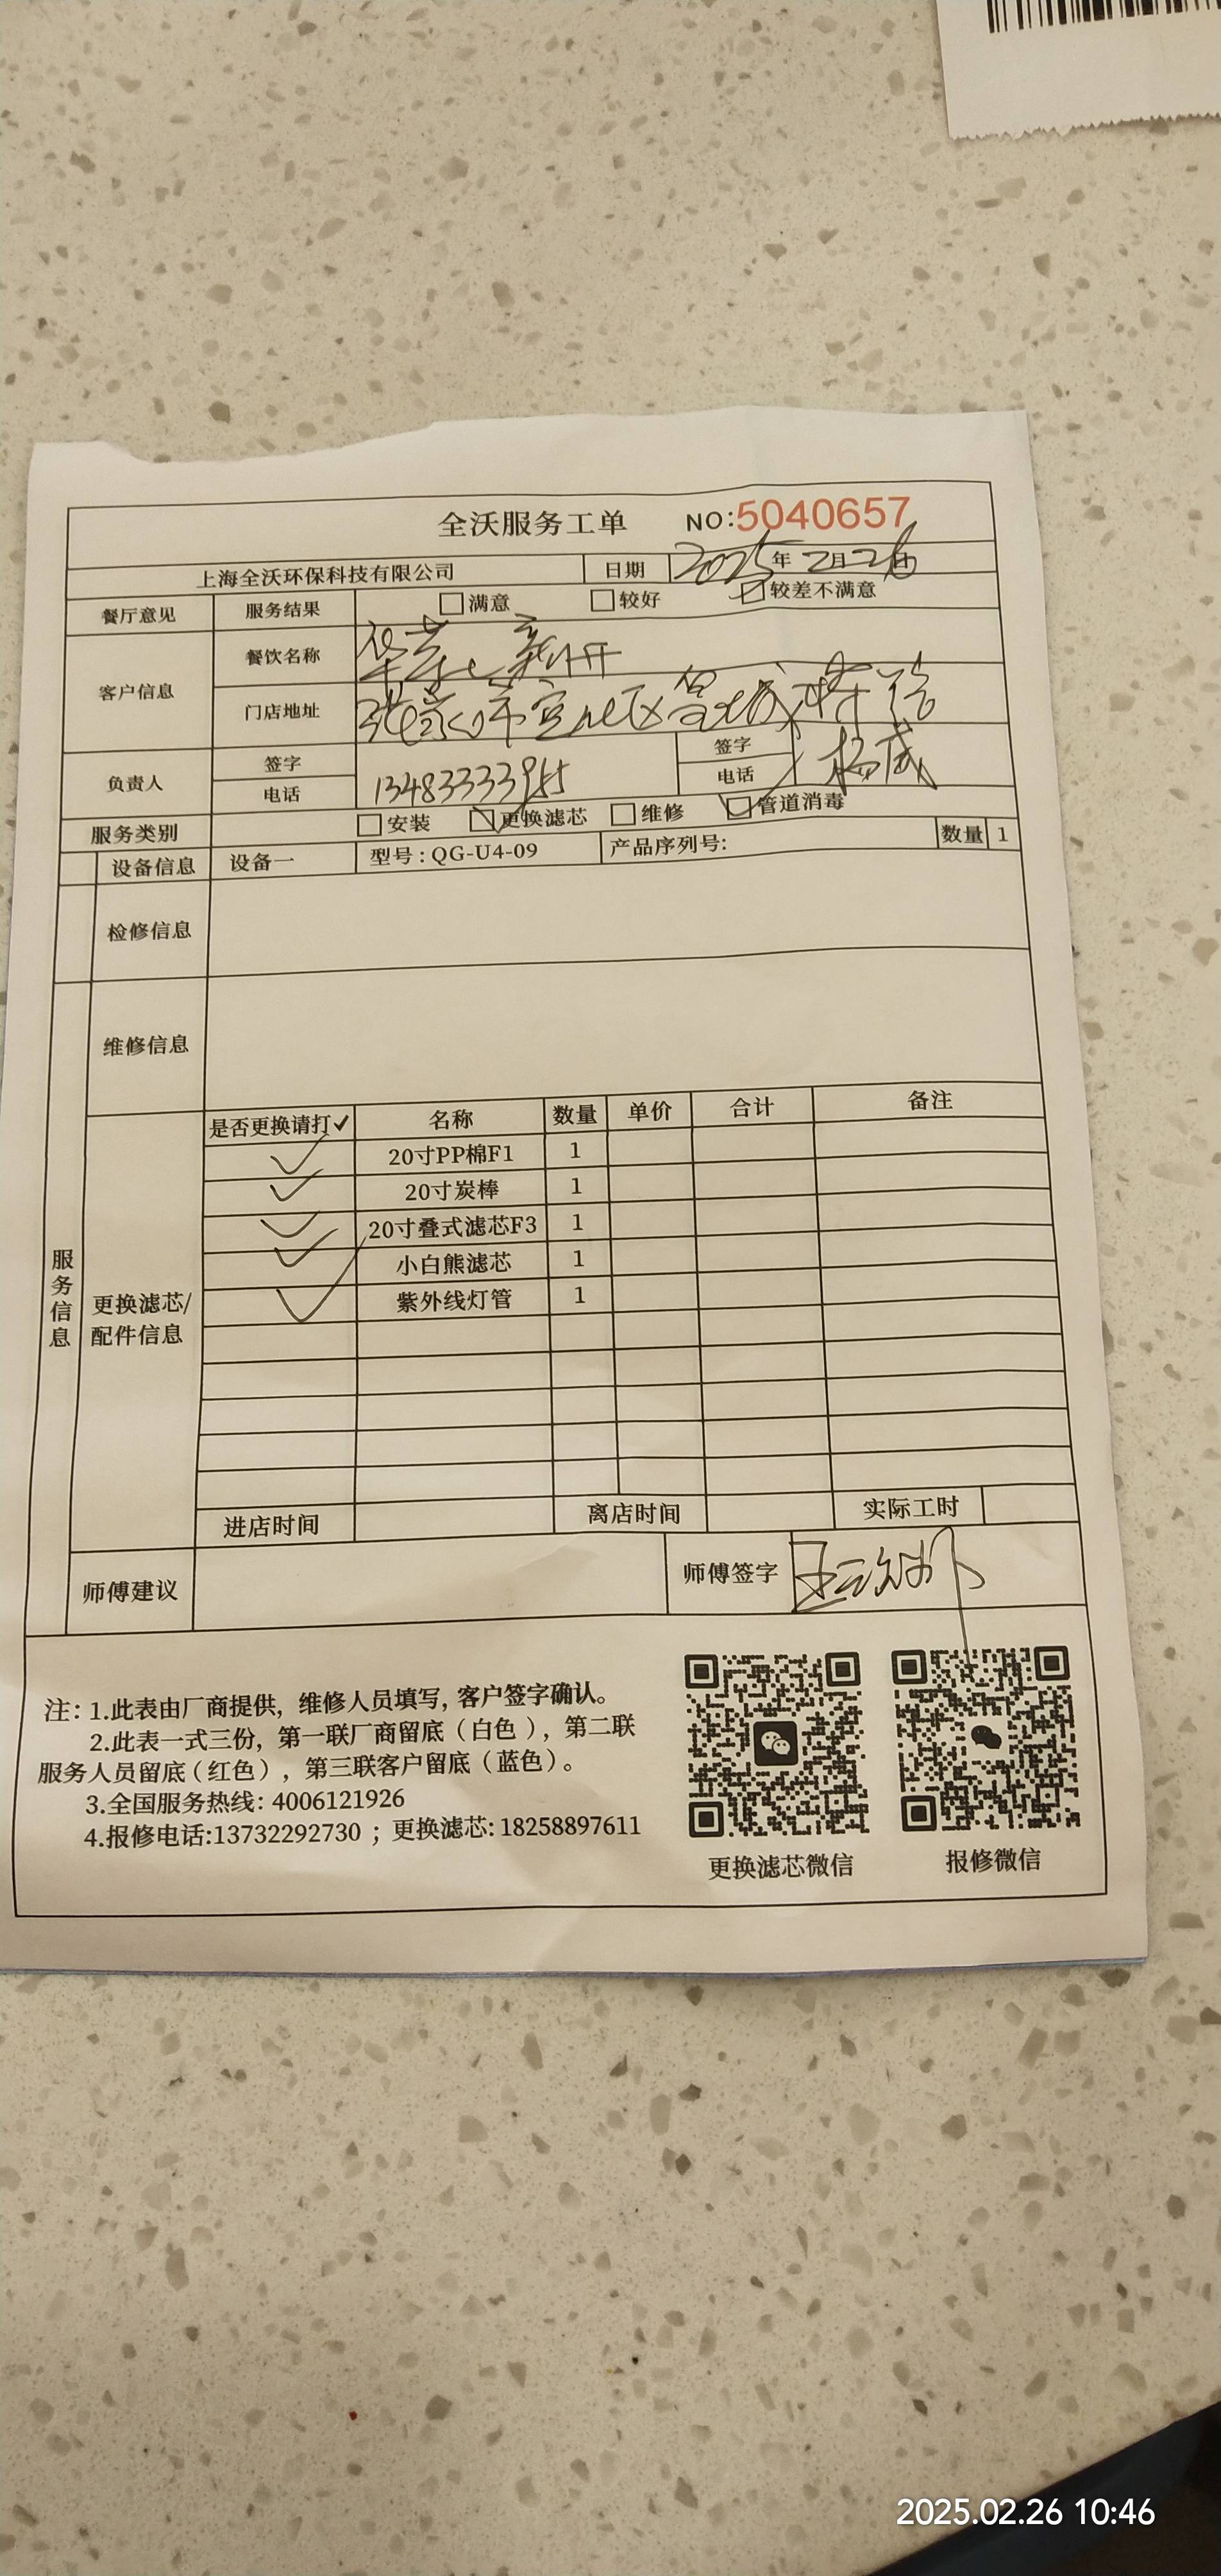 全沃服务工单 NO:5040657
上海全沃环保科技有限公司 日期 2025年2月26日
餐厅意见 服务结果 满意 较好 较差不满意
客户信息 餐饮名称
门店地址 张家口市宣化区
负责人 签字 签字 杨威
电话 13483333955 电话
服务类别 安装 更换滤芯 维修 管道消毒
设备信息 设备一 型号:QG-U4-09 产品序列号: 数量 1
检修信息
维修信息
服务信息
更换滤芯/配件信息
是否更换请打✓ 名称 数量 单价 合计 备注
✓ 20寸PP棉F1 1
✓ 20寸炭棒 1
✓ 20寸叠式滤芯F3 1
✓ 小白熊滤芯 1
✓ 紫外线灯管 1
进店时间 离店时间 实际工时
师傅建议 师傅签字
注:1.此表由厂商提供,维修人员填写,客户签字确认。
2.此表一式三份,第一联厂商留底(白色),第二联
服务人员留底(红色),第三联客户留底(蓝色)。
3.全国服务热线:4006121926
4.报修电话:13732292730;更换滤芯:18258897611
更换滤芯微信 报修微信
2025.02.26 10:46